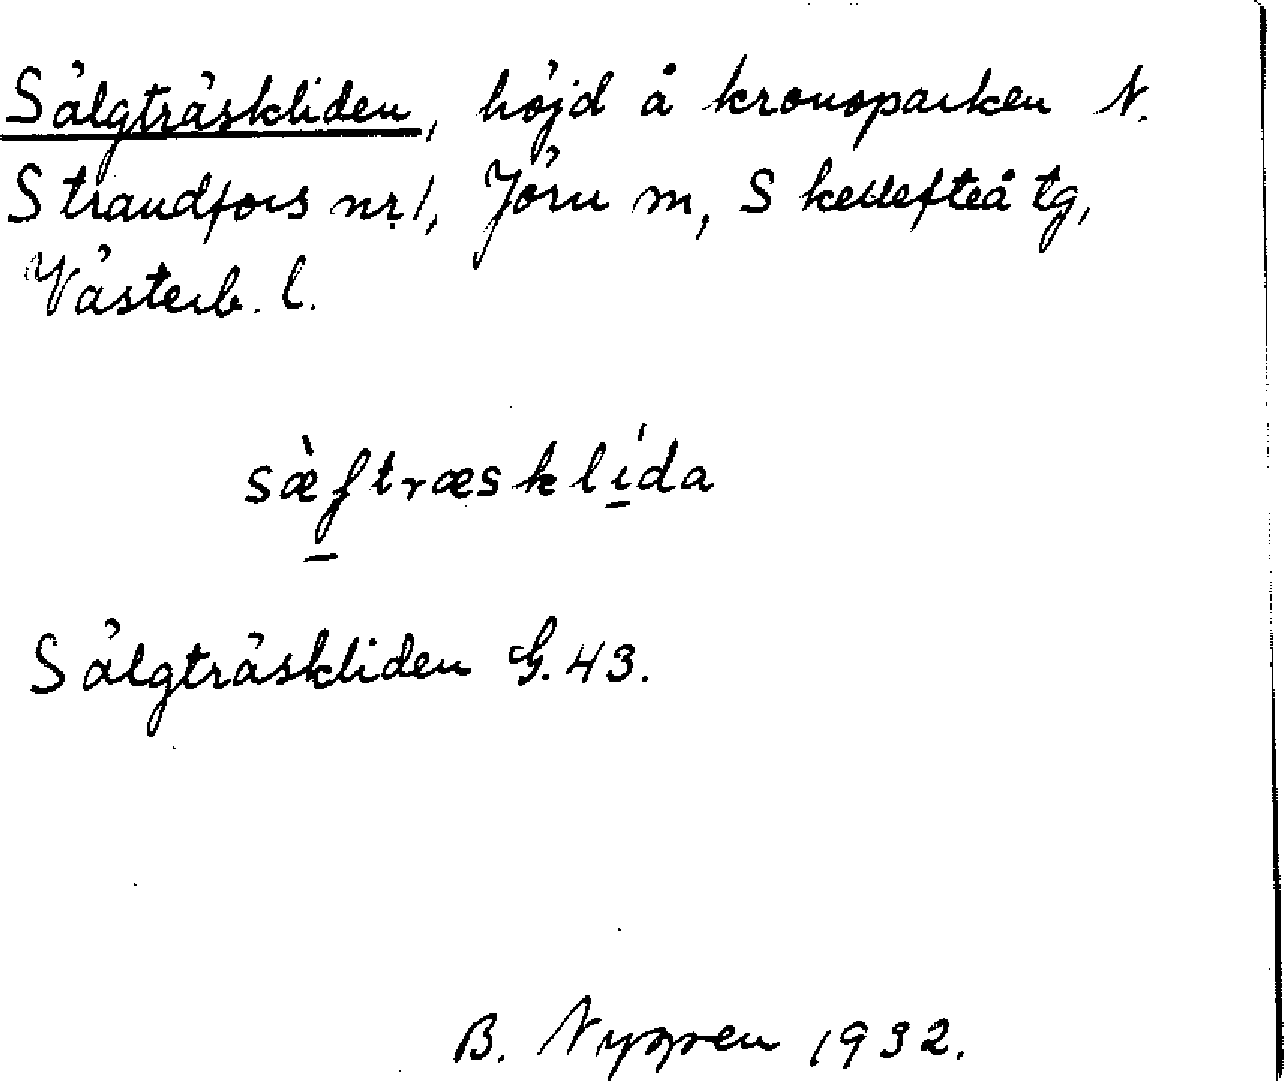 Sälgträskliden, höjd å kronoparken N.
Strandfors nr 1, Jörn m, Skellefteå tg,
Västerb. l.
sæ̀ftræsklída
Sälgträskliden G. 43.
B. Nygren 1932.